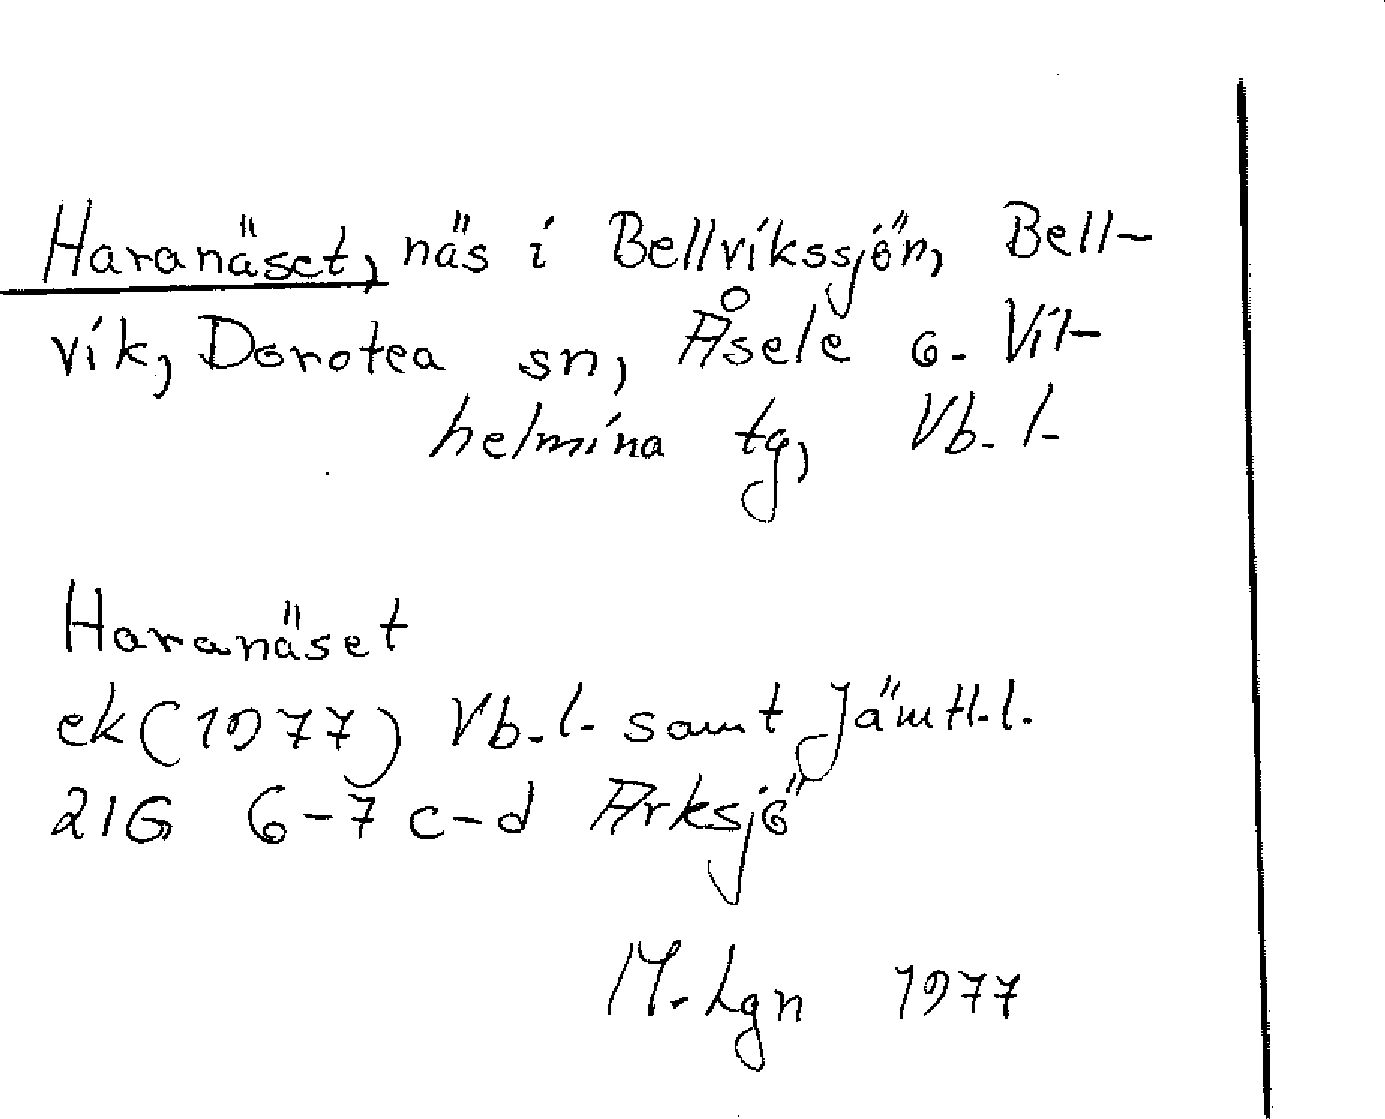 Haranäset, näs i Bellvikssjön, Bell-
vik, Dorotea sn, Åsele o. Vil-
helmina tg, Vb. l.
Haranäset
ek (1977) Vb. l. samt Jämtl. l.
21G 6-7 c-d Arksjö
M. Lgn 1977